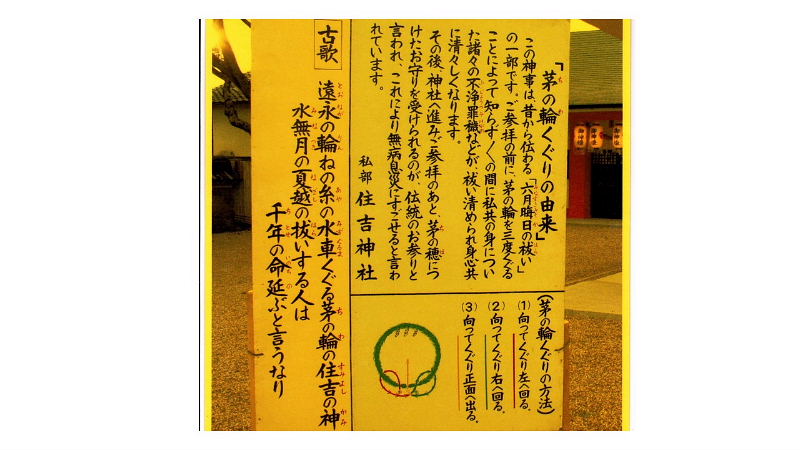 「茅の輪くぐりの由来」
この神事は、昔から伝わる「六月晦日の祓い」
の一部です。ご参拝の前に、茅の輪を三度くぐる
ことによって知らず〱の間に私共の身につい
た諸々の不浄罪穢などが、祓い清められ身心共
に清々しくなります。
その後、神社へ進みご参拝のあと、茅の穂につ
けたお守りを受けられるのが、伝統のお参りと
言われ、これにより無病息災にすごせると言わ
れています。
私部 住吉神社
(茅の輪くぐりの方法)
(1) 向ってくぐり左へ回る。
(2) 向ってくぐり右へ回る。
(3) 向ってくぐり正面へ出る。
古歌
遠永の輪ねの糸の水車くぐる茅の輪の住吉の神
水無月の夏越の祓いする人は
千年の命延ぶと言うなり